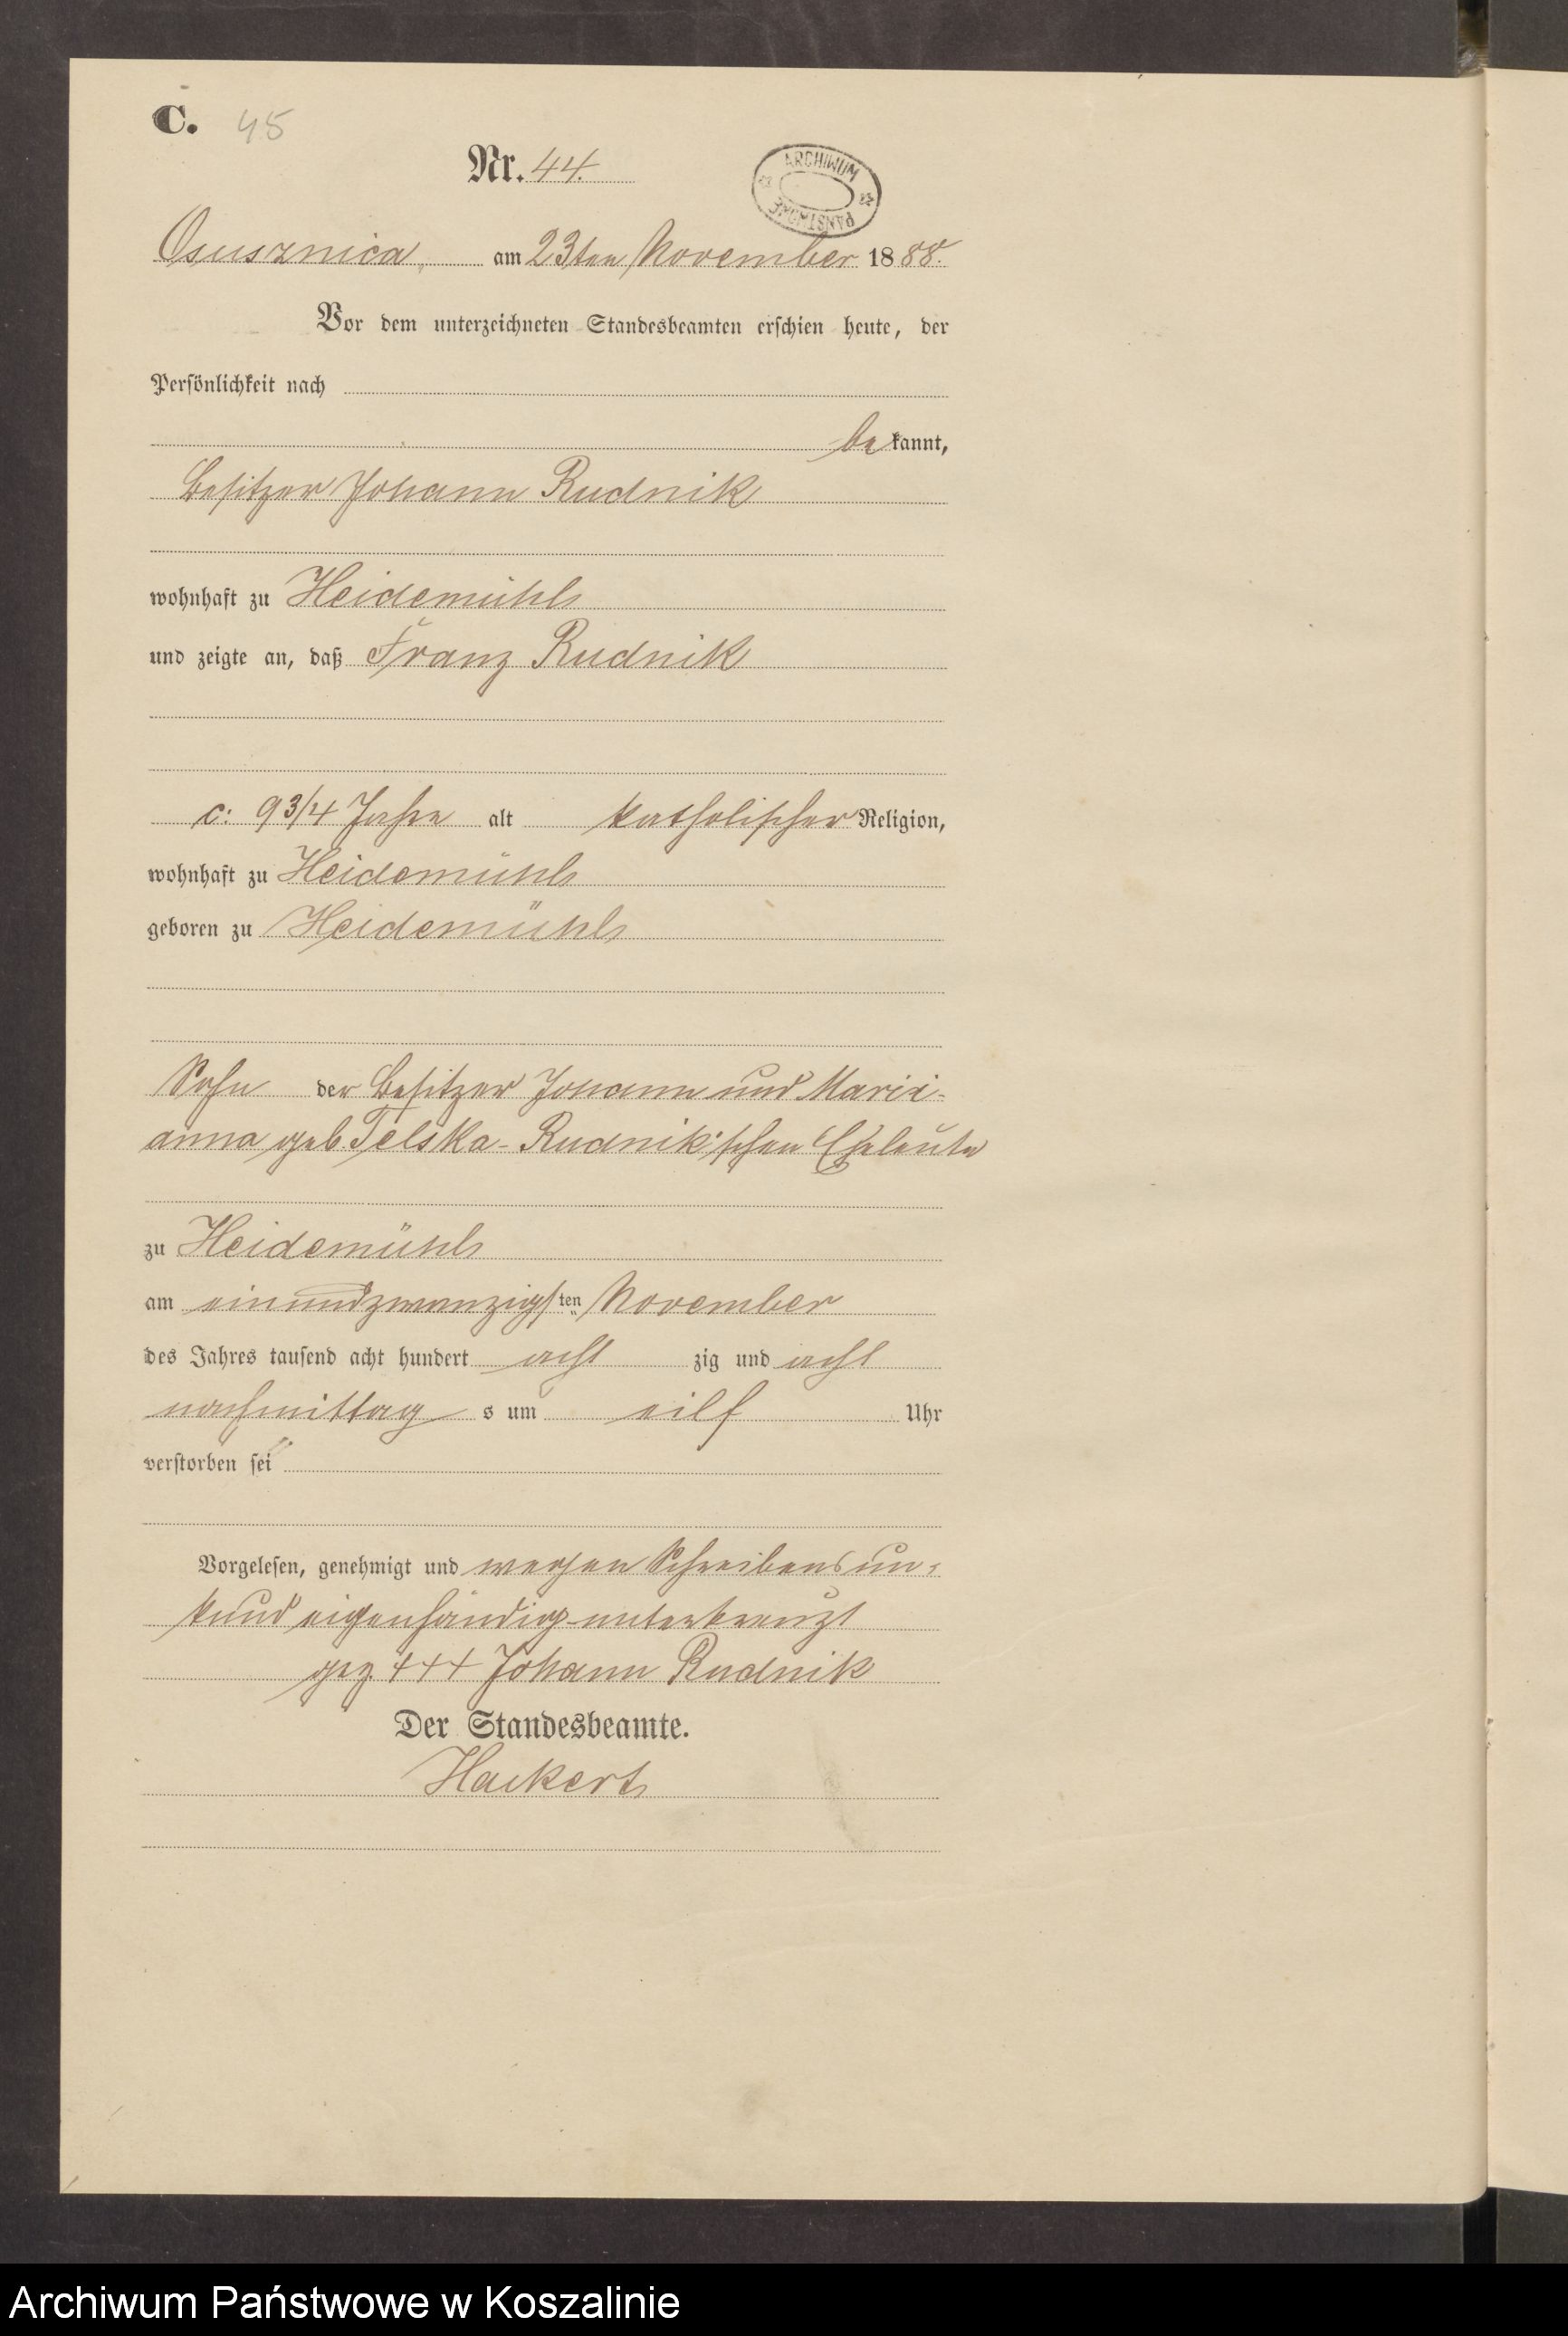 C. 45
Nr. 44.
ARCHIWUM PAŃSTWOWE
Osusznica, am 23ten November 1888.
Vor dem unterzeichneten Standesbeamten erschien heute, der
Persönlichkeit nach
bekannt,
Besitzer Johann Rudnik
wohnhaft zu Heidemühl
und zeigte an, daß Franz Rudnik
c: 9 3/4 Jahre alt katholischer Religion,
wohnhaft zu Heidemühl
geboren zu Heidemühl
Sohn der Besitzer Johann und Mari-
anna geb. Telska-Rudnik'schen Eheleute
zu Heidemühl
am einundzwanzigsten November
des Jahres tausend acht hundert acht zig und acht
nachmittag s um eilf Uhr
verstorben sei
Vorgelesen, genehmigt und wegen Schreibensun-
kund eigenhändig unterkreuzt
gez. +++ Johann Rudnik
Der Standesbeamte.
Hackert
Archiwum Państwowe w Koszalinie